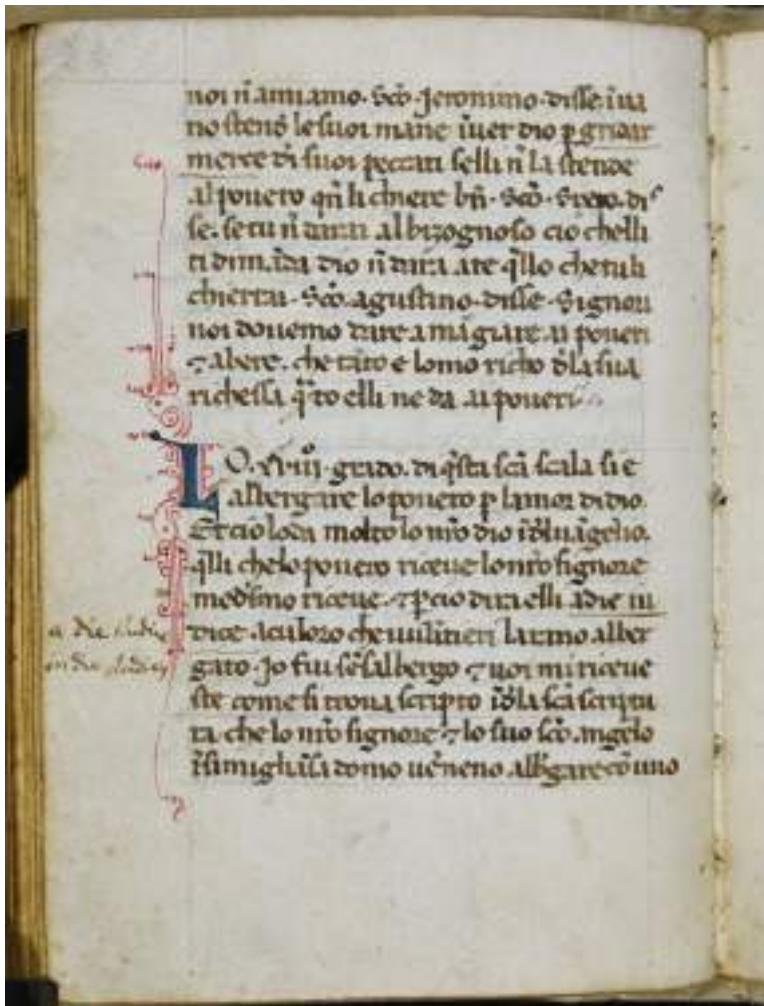 noi n̄ amiamo. Sc̄o. Jeronimo. disse. īua
no stend̄ le suoi mane īuer dio ꝑ gridar
merce di suoi peccati selli n̄ la stende
al pouero qn̄ li chiere bn̄. Sc̄o. di
se. se tu n̄ darai al bizognoso cio chelli
ti dimāda dio n̄ dara a te q̄llo che tu li
chierrai. Sc̄o. agustino. disse. Signori
noi douemo dare a māgiare ai poueri
⁊ a bere. che tāto e lomo richo d̄la sua
richessa q̄to elli ne da ai poueri
LO. xviii°. grado. di q̄sta sc̄a scala si e
albergare lo pouero ꝑ lamor di dio.
Et cio loda molto lo nr̄o dio īd̄luāgelio.
q̄lli che lo pouero riceue lo nr̄o signore
med̄simo riceue. ⁊ ꝑcio dira elli a die iu
dice a culoro che uulintieri larano alber
gato. Jo fui sēsalbergo ⁊ uoi mi riceue
ste come si troua scripto īd̄la sc̄a scriptu
ra che lo nr̄o signore ⁊ lo suo sc̄o. angelo
ī simigliāsa domo uēneno albgare cō uno
a die iudice